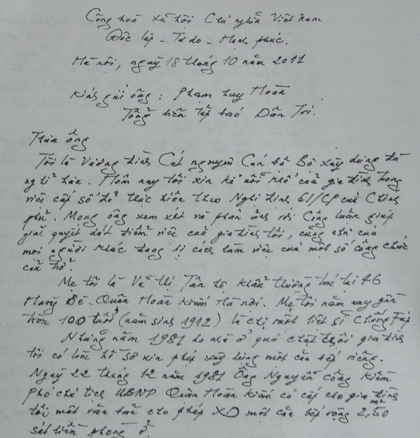 Cộng hoà xã hội Chủ nghĩa Việt Nam
Độc lập - Tự do - Hạnh phúc.
Hà nội, ngày 18 tháng 10 năm 2011
Kính gửi ông: Phạm Huy Hoàn
Tổng biên tập báo Dân Trí.
Thưa ông
Tôi là Vương Đình Cát nguyên Cán bộ Bộ xây dựng đã
nghỉ hưu. Hôm nay tôi xin kể nỗi khổ của gia đình trong
việc cấp sổ đỏ thực hiện theo Nghị định 61/CP của Chính
phủ. Mong ông xem xét và phản ánh với Công luận giúp
giải quyết dứt điểm việc của gia đình tôi, cũng như của
mọi người khác đang bị cách làm việc của một số công chức
cản trở.
Mẹ tôi là Vũ Thị Tần hộ khẩu thường trú tại 46
Hàng Bè - Quận Hoàn Kiếm Hà nội. Mẹ tôi năm nay gần
tròn 100 tuổi (năm sinh 1912) là chị một liệt sĩ Chống Pháp
Những năm 1981 do nhà ở quá chật chội gia đình
tôi có làm hồ sơ xin phép xây dựng một căn bếp riêng.
Ngày 22 tháng 12 năm 1981 Ông Nguyễn Công Kiêm
Phó chủ tịch UBND Quận Hoàn Kiếm có cấp cho gia đình
tôi, một văn bản cho phép XD một căn bếp rộng 2,50 m2
sát liền phòng ở.